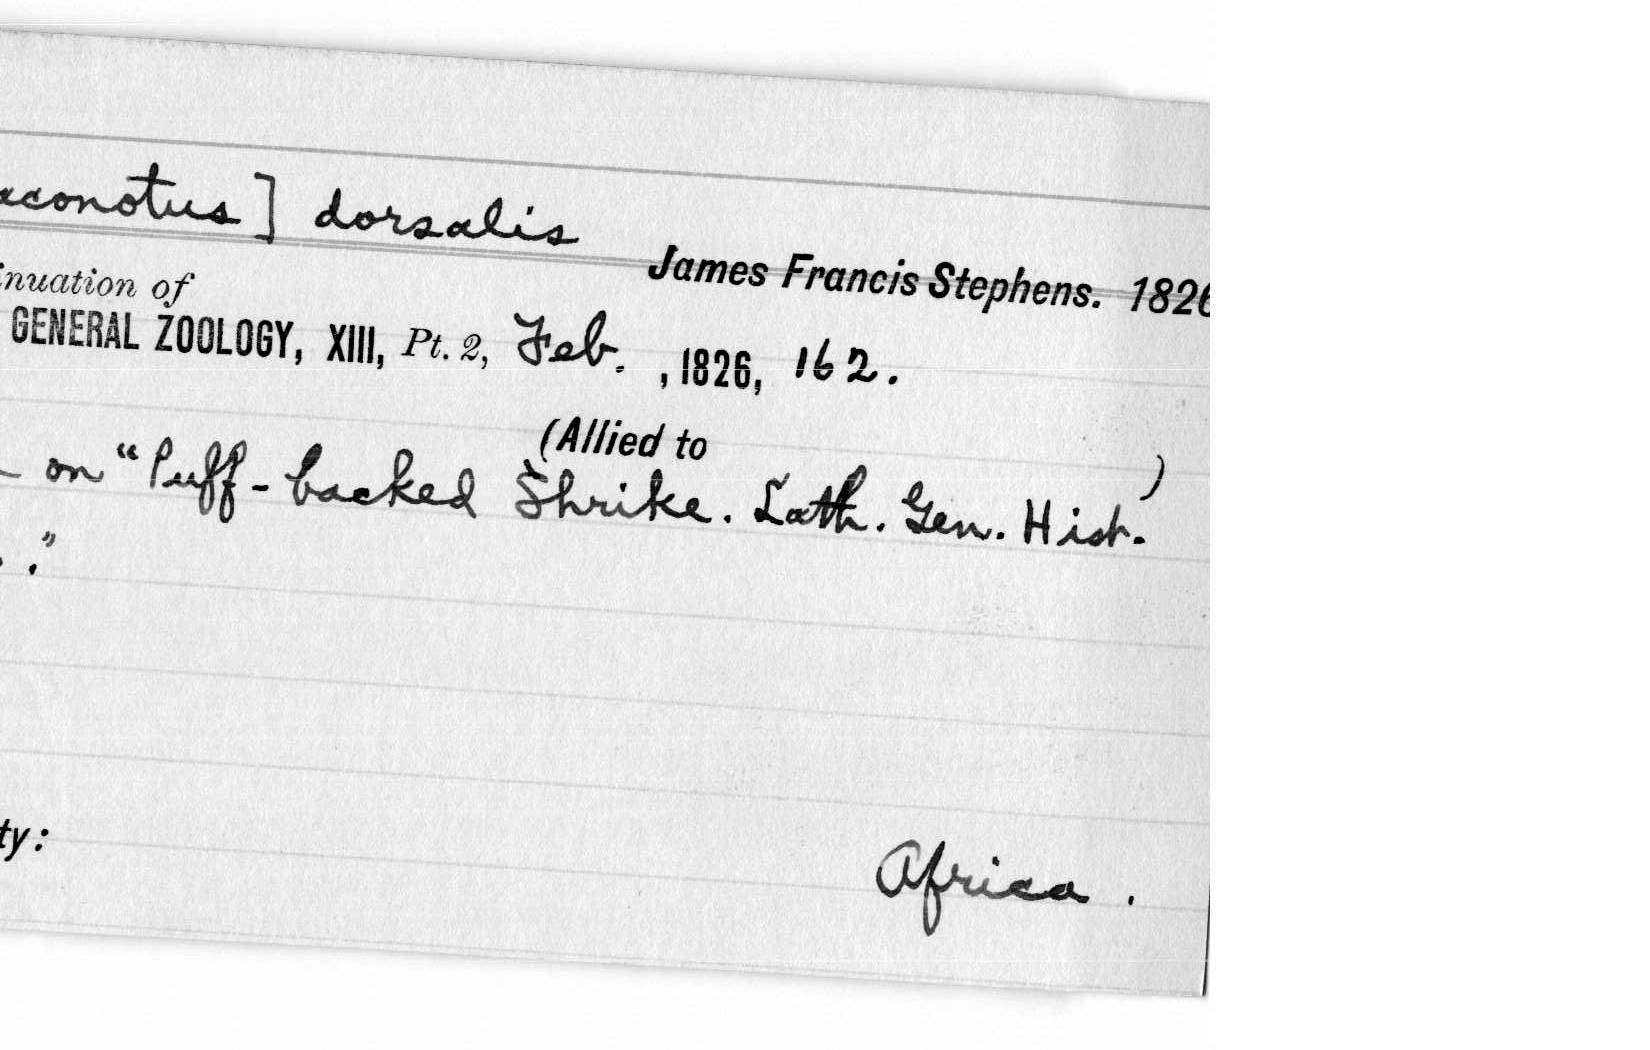 aconotus] dorsalis
James Francis Stephens. 1826
inuation of
GENERAL ZOOLOGY, XIII, Pt. 2, Feb. , 1826, 162.
(Allied to )
on "Puff-backed Shrike. Lath. Gen. Hist.
."
ty:
Africa .